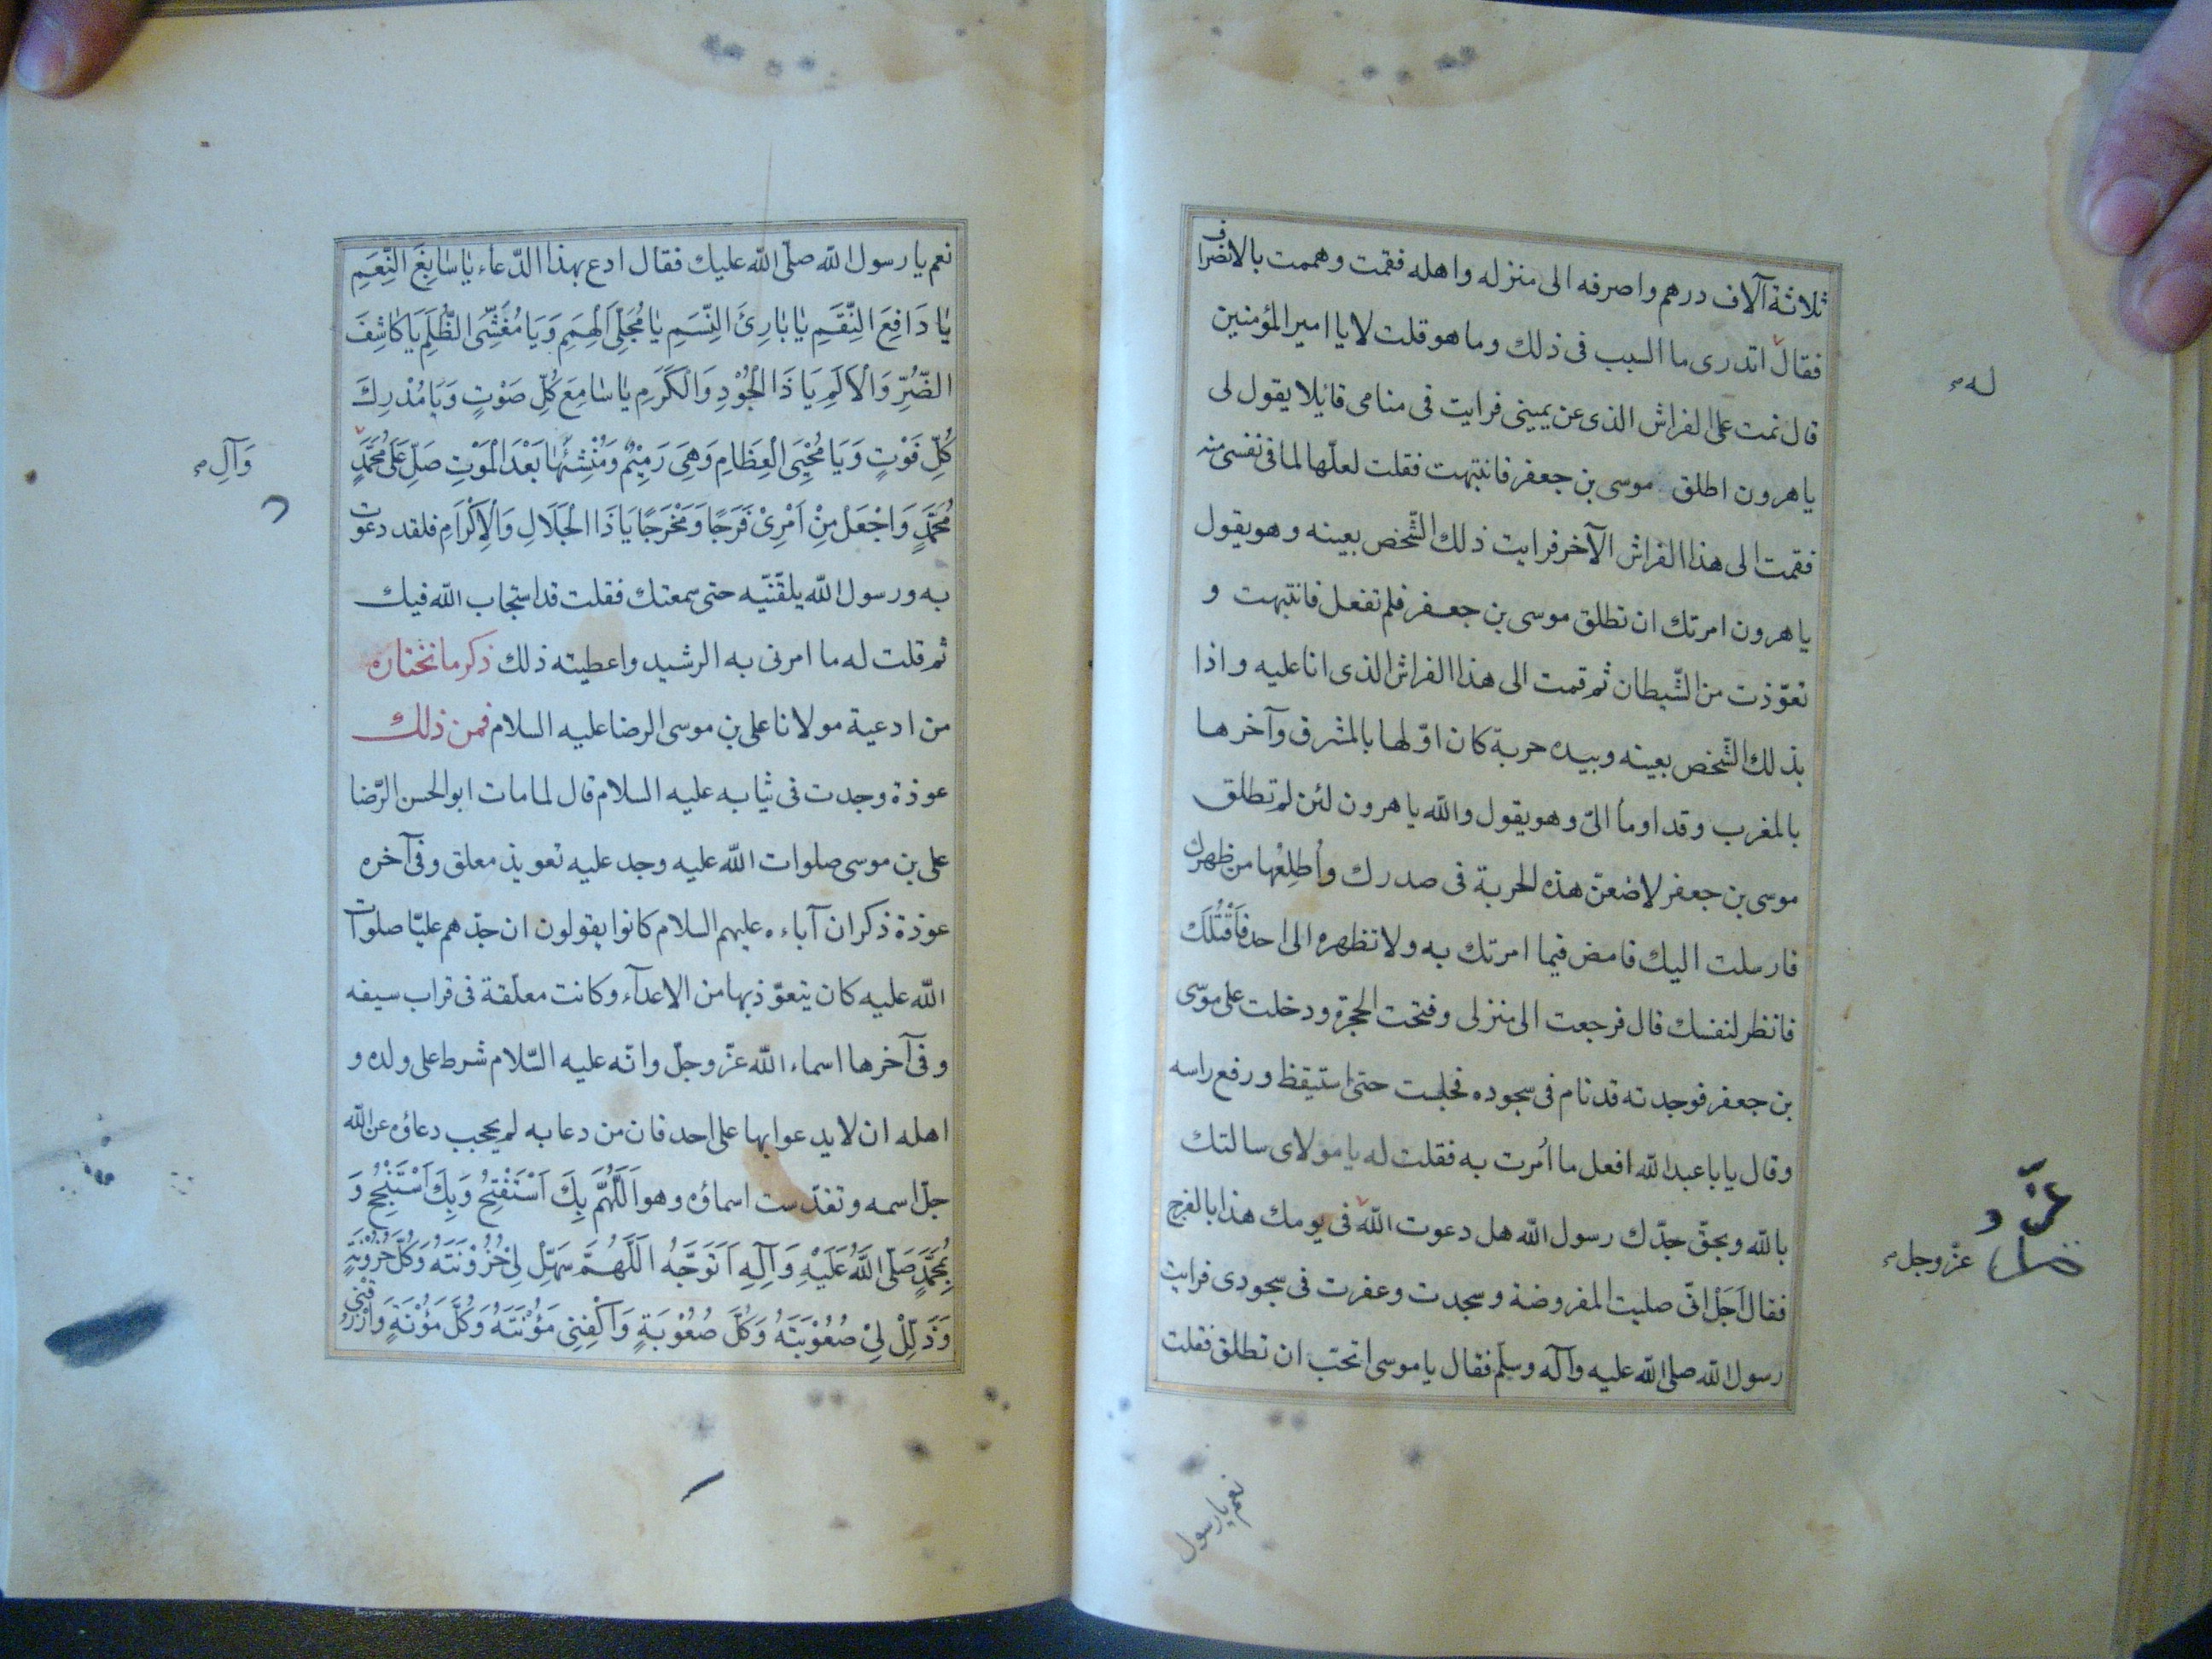 ثلاثة آلاف درهم واصرفه الى منزله واهله فقمت وهممت بالانصراف
فقال اتدرى ما السبب فى ذلك وما هو قلت لا يا امير المؤمنين
له
قال نمت على الفراش الذى عن يمينى فرايت فى منامى قائلا يقول لى
يا هرون اطلق موسى بن جعفر فانتبهت فقلت لعلّها لما فى نفسى منه
فقمت الى هذا الفراش الآخر فرايت ذلك الشّخص بعينه وهو يقول
يا هرون امرتك ان تطلق موسى بن جعفر فلم تفعل فانتبهت و
تعوّذت من الشّيطان ثم قمت الى هذا الفراش الذى انا عليه واذا
بذلك الشّخص بعينه وبيده حربة كان اوّلها بالمشرق وآخرها
بالمغرب وقد اومأ الىّ وهو يقول والله يا هرون لئن لم تطلق
موسى بن جعفر لاضعنّ هذه الحربة فى صدرك وأُطلِعُها من ظهرك
فارسلت اليك فامض فيما امرتك به ولا تظهره الى احد فَأَقْتُلَكَ
فانظر لنفسك قال فرجعت الى منزلى وفتحت الحجرة ودخلت على موسى
بن جعفر فوجدته قد نام فى سجوده فجلست حتى استيقظ ورفع راسه
وقال يا با عبد الله افعل ما اُمرت به فقلت له يا مولاى سالتك
بالله وبحقّ جدّك رسول الله هل دعوت الله فى يومك هذا بالفرج
عزّ و
عزّ وجل
فقال اَجَلْ انّى صليت المفروضة وسجدت وعفرت فى سجودى فرايت
رسول الله صلى الله عليه وآله وسلّم فقال يا موسى اتحبّ ان تطلق فقلت
نعم يا رسول
نعم يا رسول الله صلّى الله عليك فقال ادع بهذا الدّعاء يَا سَابِغَ النِّعَمِ
يَا دَافِعَ النِّقَمِ يَا بَارِئَ النِّسَمِ يَا مُجَلِّىَ الْهِمَمِ وَيَا مُغَشِّىَ الظُّلَمِ يَا كَاشِفَ
الضُّرِّ وَالْاَلَمِ يَا ذَا الْجُوْدِ وَالْكَرَمِ يَا سَامِعَ كُلِّ صَوْتٍ وَيَا مُدْرِكَ
كُلِّ فَوْتٍ وَيَا مُحْيِىَ الْعِظَامِ وَهِىَ رَمِيْمٌ وَمُنْشِئَهَا بَعْدَ الْمَوْتِ صَلِّ عَلَى مُحَمَّدٍ
وَآلِ
مُحَمَّدٍ وَاجْعَلْ مِنْ اَمْرِىْ فَرَجًا وَمَخْرَجًا يَا ذَا الْجَلَالِ وَالْاِكْرَامِ فلقد دعوت
به ورسول الله يلقّنيه حتى سمعتك فقلت قد استجاب الله فيك
ثم قلت له ما امرنى به الرشيد واعطيته ذلك ذكر ما نختاره
من ادعية مولانا على بن موسى الرضا عليه السلام فمن ذلك
عوذة وجدت فى ثيابه عليه السلام قال لما مات ابو الحسن الرّضا
على بن موسى صلوات الله عليه وجد عليه تعويذ معلق وفى آخره
عوذة ذكر ان آباءه عليهم السلام كانوا يقولون ان جدّهم عليّا صلوات
الله عليه كان يتعوّذ بها من الاعدآء وكانت معلّقة فى قراب سيفه
وفى آخرها اسماء الله عزّ وجلّ وانّه عليه السّلام شرط على ولده و
اهله ان لا يدعوا بها على احد فان من دعا به لم يحجب دعاؤه عن الله
جلّ اسمه وتقدّست اسماؤه وهو اَللّٰهُمَّ بِكَ اَسْتَفْتِحُ وَبِكَ اَسْتَنْجِحُ وَ
بِمُحَمَّدٍ صَلَّى اللّٰهُ عَلَيْهِ وَآلِهِ اَتَوَجَّهُ اَللّٰهُمَّ سَهِّلْ لِىْ حُزُوْنَتَهُ وَكُلَّ حُزُوْنَةٍ
وَذَلِّلْ لِىْ صُعُوْبَتَهُ وَكُلَّ صُعُوْبَةٍ وَاكْفِنِىْ مَؤُنَتَهُ وَكُلَّ مَؤُنَةٍ وَارْزُقْنِىْ